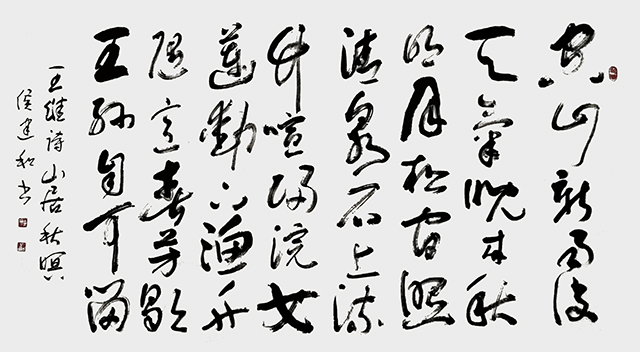 空山新雨後
天氣晚来秋
明月松間照
清泉石上流
竹喧歸浣女
蓮動下漁舟
隨意春芳歇
王孫自可留
王維诗山居秋暝
侯建和书